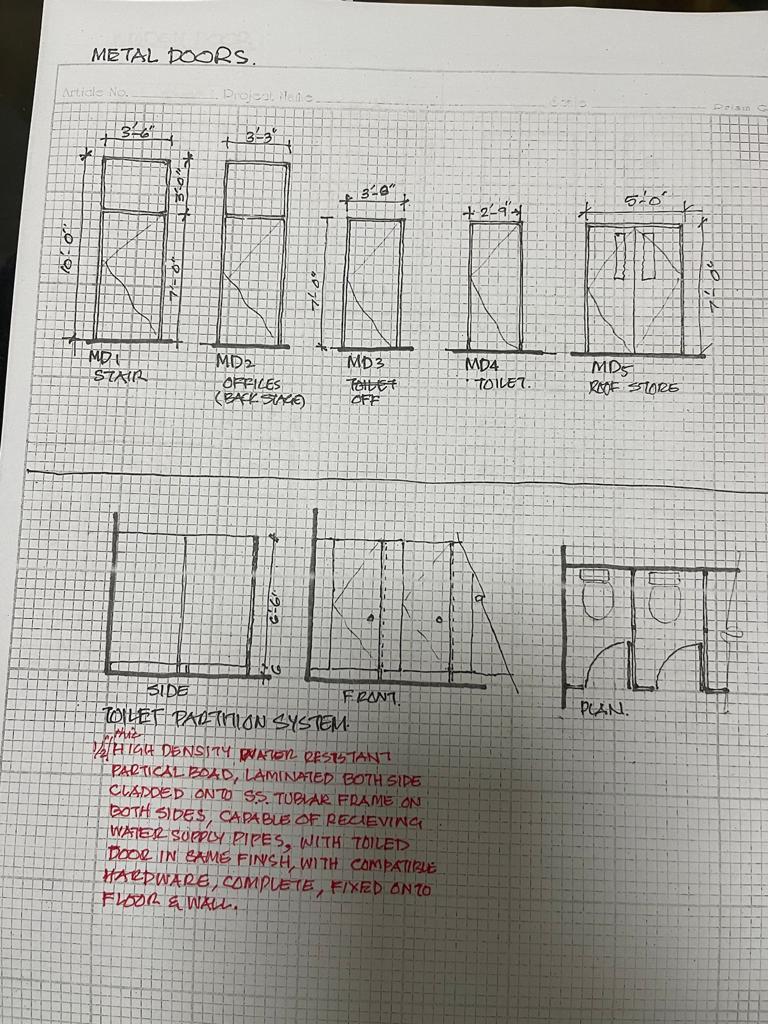 METAL DOORS.
Article No.
Project Name
3'-6"
3'-3"
3'-0"
10'-0"
7'-0"
3'-0"
7'-0"
2'-9"
5'-0"
7'-0"
MD1
STAIR
MD2
OFFICES
(BACK STAGE)
MD3
TOILET
OFF
MD4
TOILET.
MD5
ROOF STORE
6'-6"
6"
SIDE
FRONT.
PLAN.
TOILET PARTITION SYSTEM.
1/2" THIC
HIGH DENSITY WATER RESISTANT
PARTICAL BOAD, LAMINATED BOTH SIDE
CLADDED ONTO S.S. TUBLAR FRAME ON
BOTH SIDES, CAPABLE OF RECIEVING
WATER SUPPLY PIPES, WITH TOILED
DOOR IN SAME FINISH, WITH COMPATIBLE
HARDWARE, COMPLETE, FIXED ONTO
FLOOR & WALL.